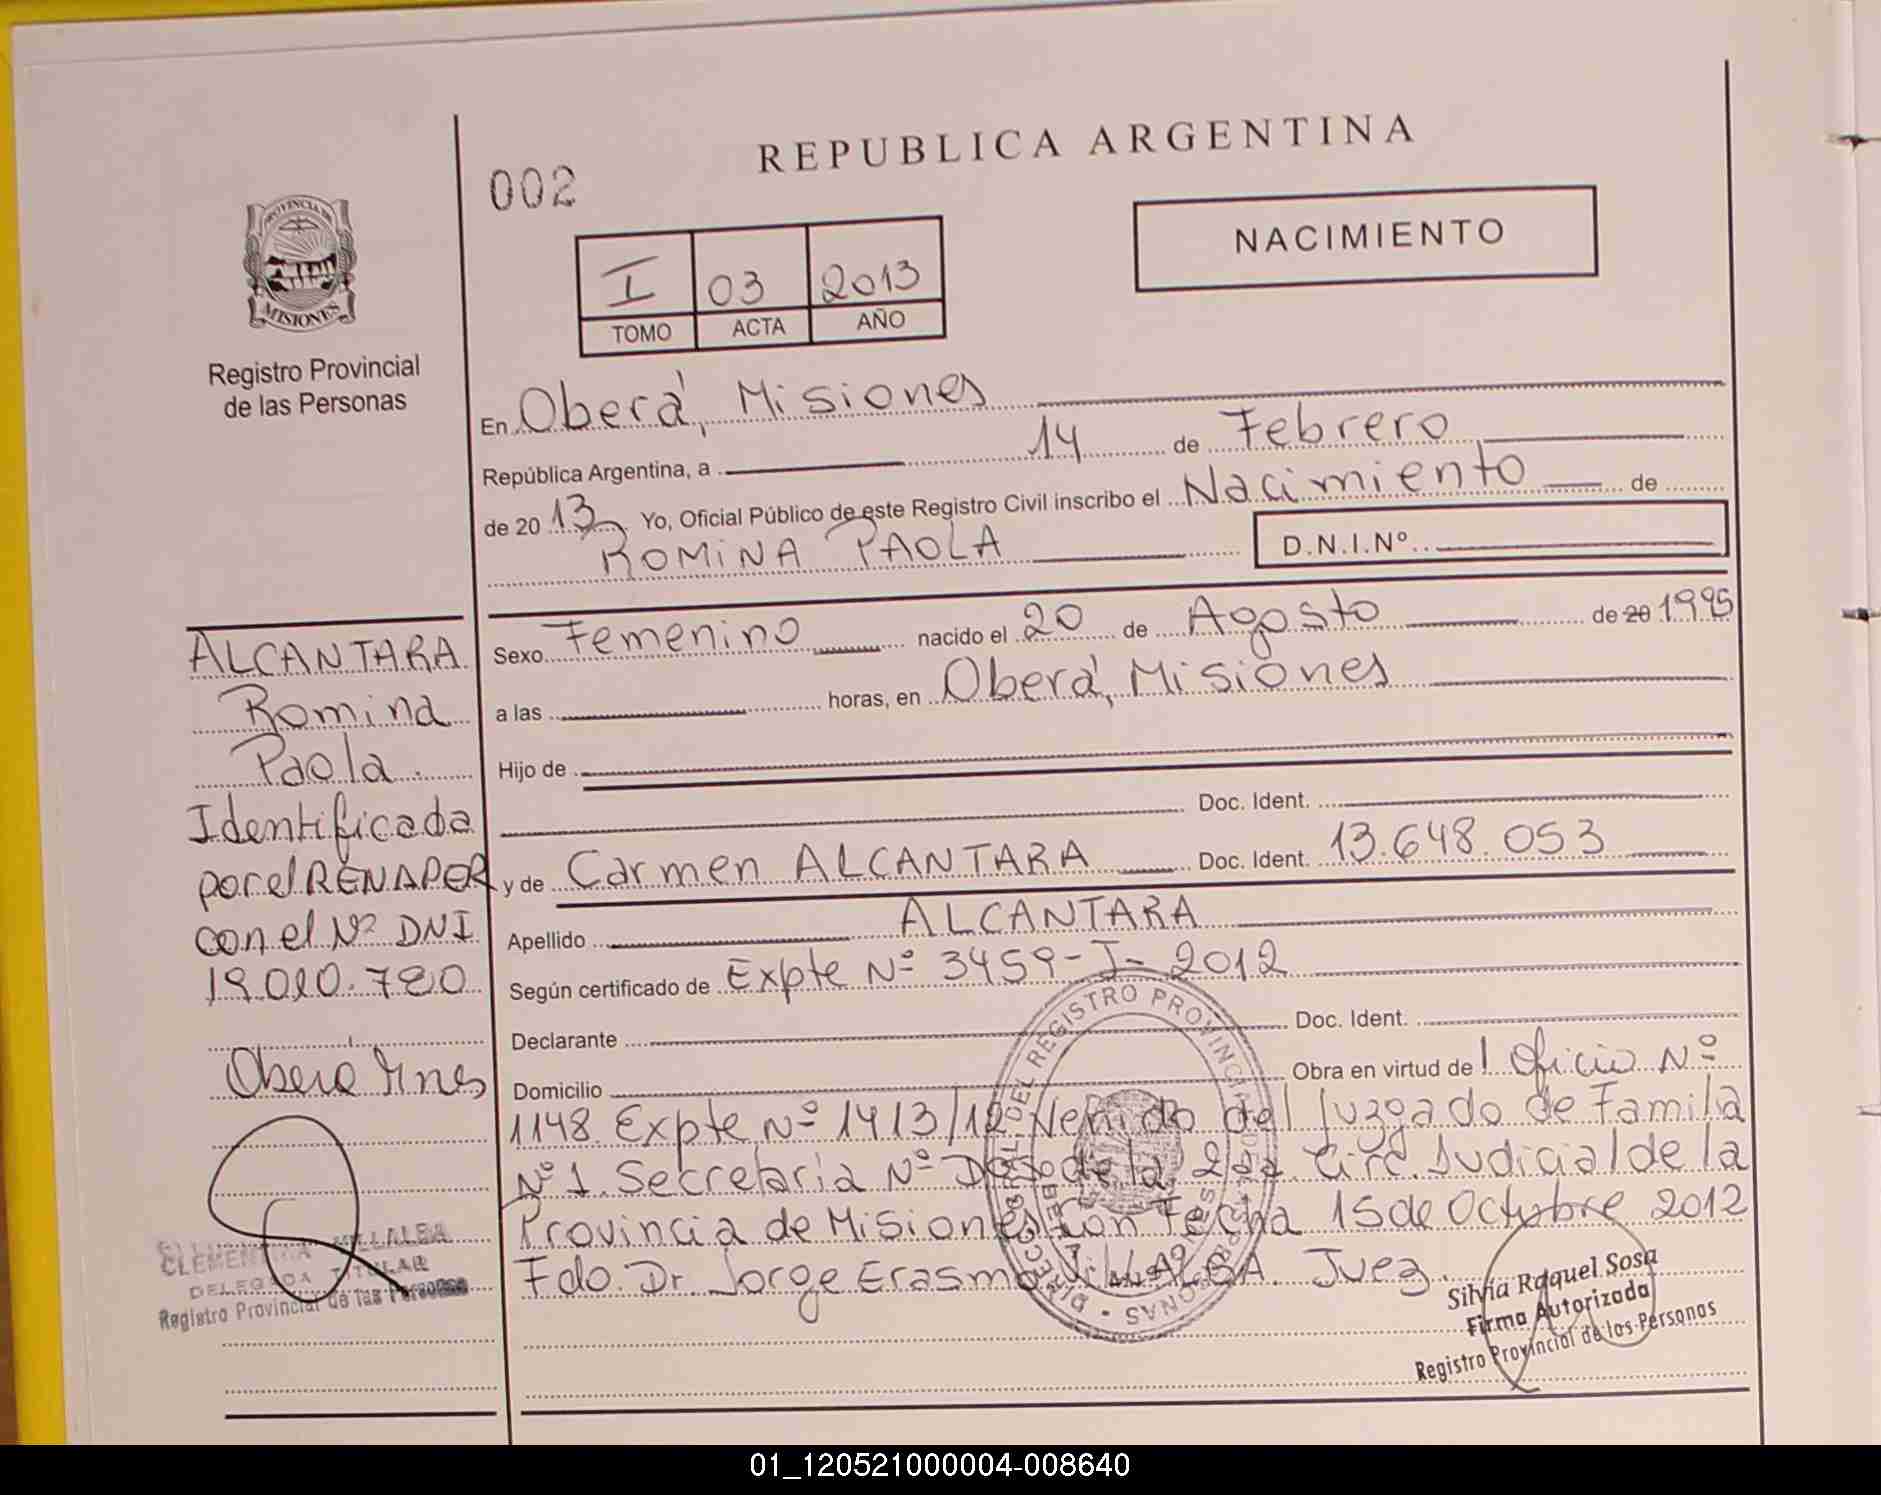 REPUBLICA ARGENTINA
002
NACIMIENTO
I 03 2013
TOMO ACTA AÑO
PROVINCIA DE
MISIONES
Registro Provincial
de las Personas
En Oberá, Misiones
República Argentina, a 14 de Febrero
de 20 13 Yo, Oficial Público de este Registro Civil inscribo el Nacimiento de
ROMINA PAOLA D.N.I.Nº
Sexo Femenino nacido el 20 de Agosto de 20 1995
a las horas, en Oberá, Misiones
Hijo de
Doc. Ident.
y de Carmen ALCANTARA Doc. Ident. 13.648.053
Apellido ALCANTARA
Según certificado de Expte Nº 3459-I-2012
Declarante Doc. Ident.
Domicilio Obra en virtud de Oficio Nº
1148 Expte Nº 1413/12 Venido del Juzgado de Familia
Nº 1. Secretaría Nº de la 2da. Circ. Judicial de la
Provincia de Misiones Con Fecha 15 de Octubre 2012
Fdo. Dr. Jorge Erasmo VILLALBA. Juez.
Silvia Raquel Sosa
Firma Autorizada
Registro Provincial de las Personas
ALCANTARA
Romina
Paola.
Identificada
por el RENAPER
con el Nº DNI
19.010.780
Oberá Mnes
VILLALBA
DELEGADA TITULAR
Registro Provincial de las Personas
01_120521000004-008640